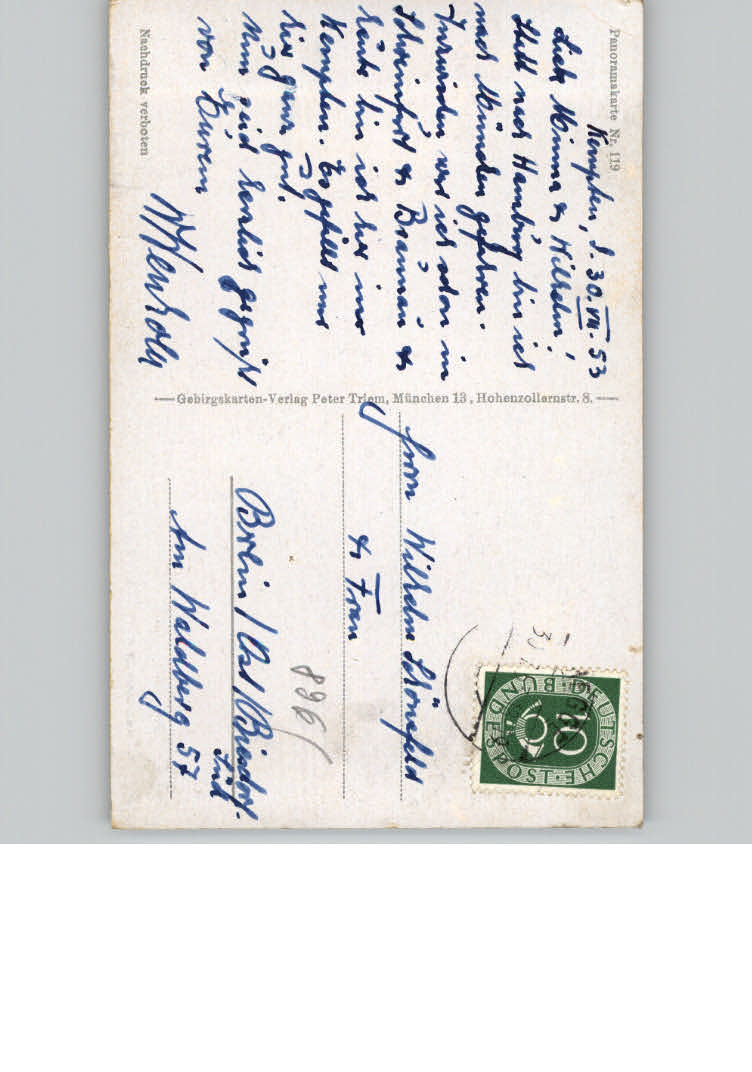 Panoramakarte Nr. 119
Kempten, d. 30. VII. 53
Liebe Minna & Wilhelm!
Statt nach Hamburg bin ich
nach München gefahren.
Inzwischen war ich schon in
Schweinfurt &
heute bin ich hier in
Kempten. Es gefällt uns
hier ganz gut.
Nun seid herzlich gegrüßt
von Eurem
Nachdruck verboten
Gebirgskarten-Verlag Peter Triem, München 13, Hohenzollernstr. 8.
DEUTSCHE BUNDESPOST
10
Herrn Wilhelm Schönfeld
& Frau
896/
Berlin / Ost / Biesdorf-
Süd
Am Waldberg 57